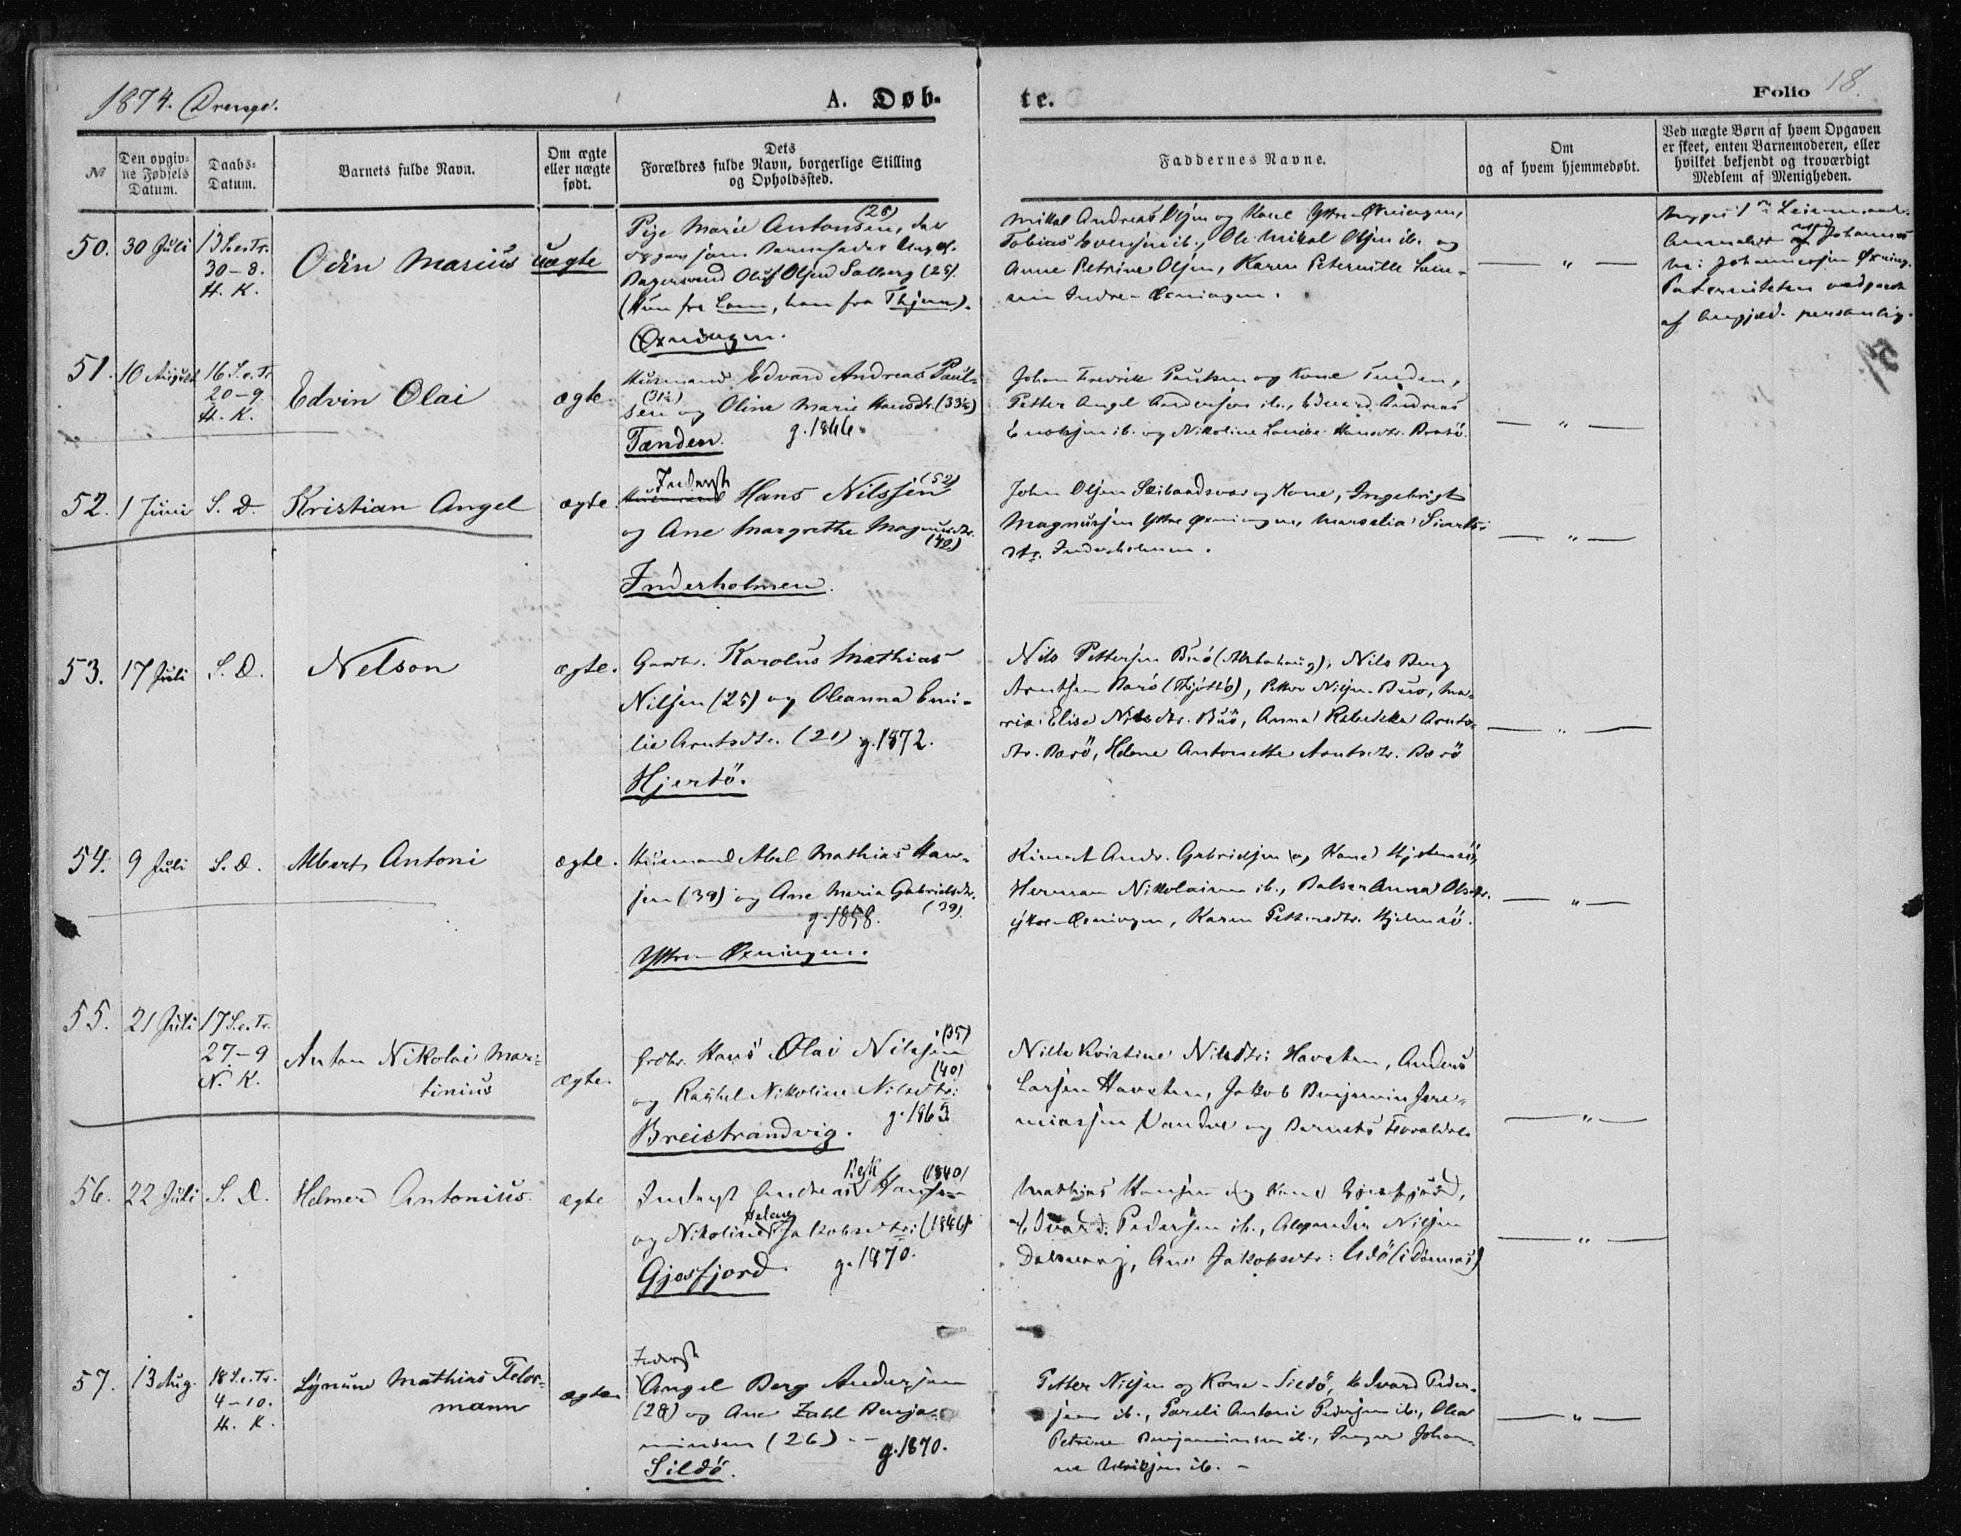 1874. Drenge.
A. Døb-
te.
Folio 18.
№
Den opgiv-
ne Fødsels
Datum.
Daabs-
Datum.
Barnets fulde Navn.
Om ægte
eller uægte
født.
Dets
Forældres fulde Navn, borgerlige Stilling
og Opholdssted.
Faddernes Navne.
Om
og af hvem hjemmedøbt.
Ved uægte Børn af hvem Opgaven
er skeet, enten Barnemoderen, eller
hvilket bekjendt og troværdigt
Medlem af Menigheden.
50. 30 Juli
13 S.e.Tr.
30-8.
H. K.
Odin Marius
uægte
Pige Marie Antonsen, (28) der
som Barnefader
Oluf Olsen Solberg (25).
(Hun fra Lom, han fra Thjem).
Øxningen.
Mikal Andreas Olsen og Kone Yttre Øxningen,
Tobias Evensen ib., Ole Mikal Olsen ib. og
Anne Petrine Olsen, Karen Peternille
Indre Øxningen.
— " —
Johannes
Johannessen Øxning.
Paterniteten vedgaaet
af personlig.
51. 10 August
16 S.e.Tr.
20-9.
H. K.
Edvin Olai
ægte.
Husmand Edvard Andreas Paul-
sen (31½) og Oline Marie Hansdtr. (33½)
g. 1866.
Tænden.
Johan Fredrik Paulsen og Kone Tænden,
Petter Angel Andersen ib., Edvard Andreas
Enoksen ib. og Nikoline Lovise Hansdtr.
— " —
52. 1 Juni
S. D.
Kristian Angel
ægte.
Inderst
Hans Nilssen (52)
og Ane Margrethe Magnusdtr.
(42)
Inderholmen.
John Olsen og Kone, Ingebrigt
Magnussen Yttre Øxningen, Marselia Sivert-
dtr. Inderholmen.
— " —
53. 17 Juli
S. D.
Nelson
ægte.
Gaardbr. Karolus Mathias
Nilsen (25) og Oleanna Emi-
lie Arntsdtr. (21) g. 1872.
Hjertö.
Nils Pettersen Buö (Alstahaug), Nils Berg
Arntsen Barö (Tjöttö), Petter Nilsen Buö, Ma-
ria Elise Nilsdtr. Buö, Anna Rebekka Arnts-
dtr. Barö, Helene Antonette Arntsdtr. Barö
— " —
54. 9 Juli
S. D.
Albert Antoni
ægte.
Husmand Abel Mathias Han-
sen (39) og Ane Maria Gabrielsdtr.
(39).
g. 1858.
Yttre Øxningen.
Andr. Gabrielsen og Kone Hjelmsö,
Herman Nikolaisen ib., Anna Olsdtr.
Yttre Øxningen, Karen Pettersdtr. Hjelmsö.
— " —
55. 21 Juli
17 S.e.Tr.
27-9
N. K.
Anton Nikolai Mar-
tinius
ægte.
Grdbr. Hans Olai Nilssen (35)
(40)
og Rachel Nikoline Nilsdtr:
g. 1863
Breistrandvig.
Nille Kristine Nilsdtr: Havsten, Anders
Larsen Havsten, Jakob Benjamin Jere-
miassen Vandve og Barnets Forældre
— " —
56. 22 Juli
S. D.
Helmer Antonius
ægte
Inderst Andreas Berk Hansen (1840)
og Nikoline Helene Jakobsdtr: (1846)
g. 1870.
Gjesfjord.
Mathias Hansen og Kone Gjesfjord,
Edvard Pedersen ib., Alexander Nilsen
Ane Jakobsdtr: (i Dönnæs)
— " —
57. 13 Aug.
18 S.e.Tr.
4-10.
H. K.
Mathias Felor-
mann
ægte
Inderst
Angel Berg Andersen
(28) og Ane Zahl Benja-
minsen (26) -
g. 1870.
Sildö.
Petter Nilsen og Kone Sildö, Edvard Peder-
sen ib., Pareli Antoni Pedersen ib., Olea
Petrine Benjaminsen ib., Johan-
ne ib. -
— " —